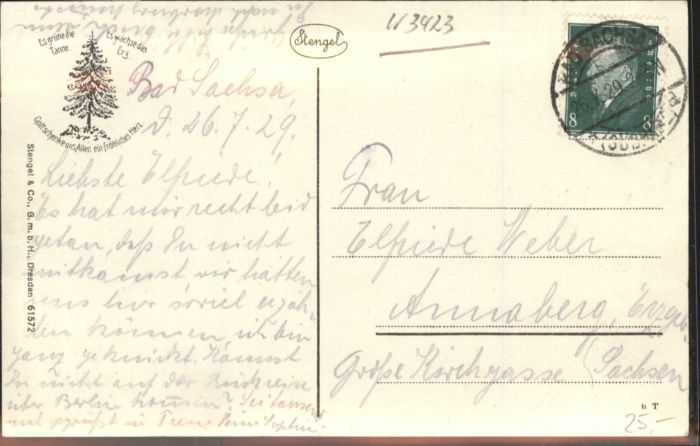 Es grüne die Tanne
Es wachse das Erz
Gott schenke uns Allen ein fröhliches Herz.
Stengel
Stengel & Co., G. m. b. H., Dresden 61572
Bad Sachsa,
d. 26.7.29.
Liebste Elfriede,
Es hat mir recht leid
getan, daß Du nicht
mitkamst, wir hätten
uns hier soviel erzäh-
len können, ich bin
ganz geknickt. Kannst
Du nicht auf der Rückreise
über Berlin kommen? Sei tausend
mal gegrüßt in Treue Deine Sophie.
Frau
Elfriede Weber
Annaberg, Erzgeb.
Große Kirchgasse (Sachsen
8 8
h T
25,-